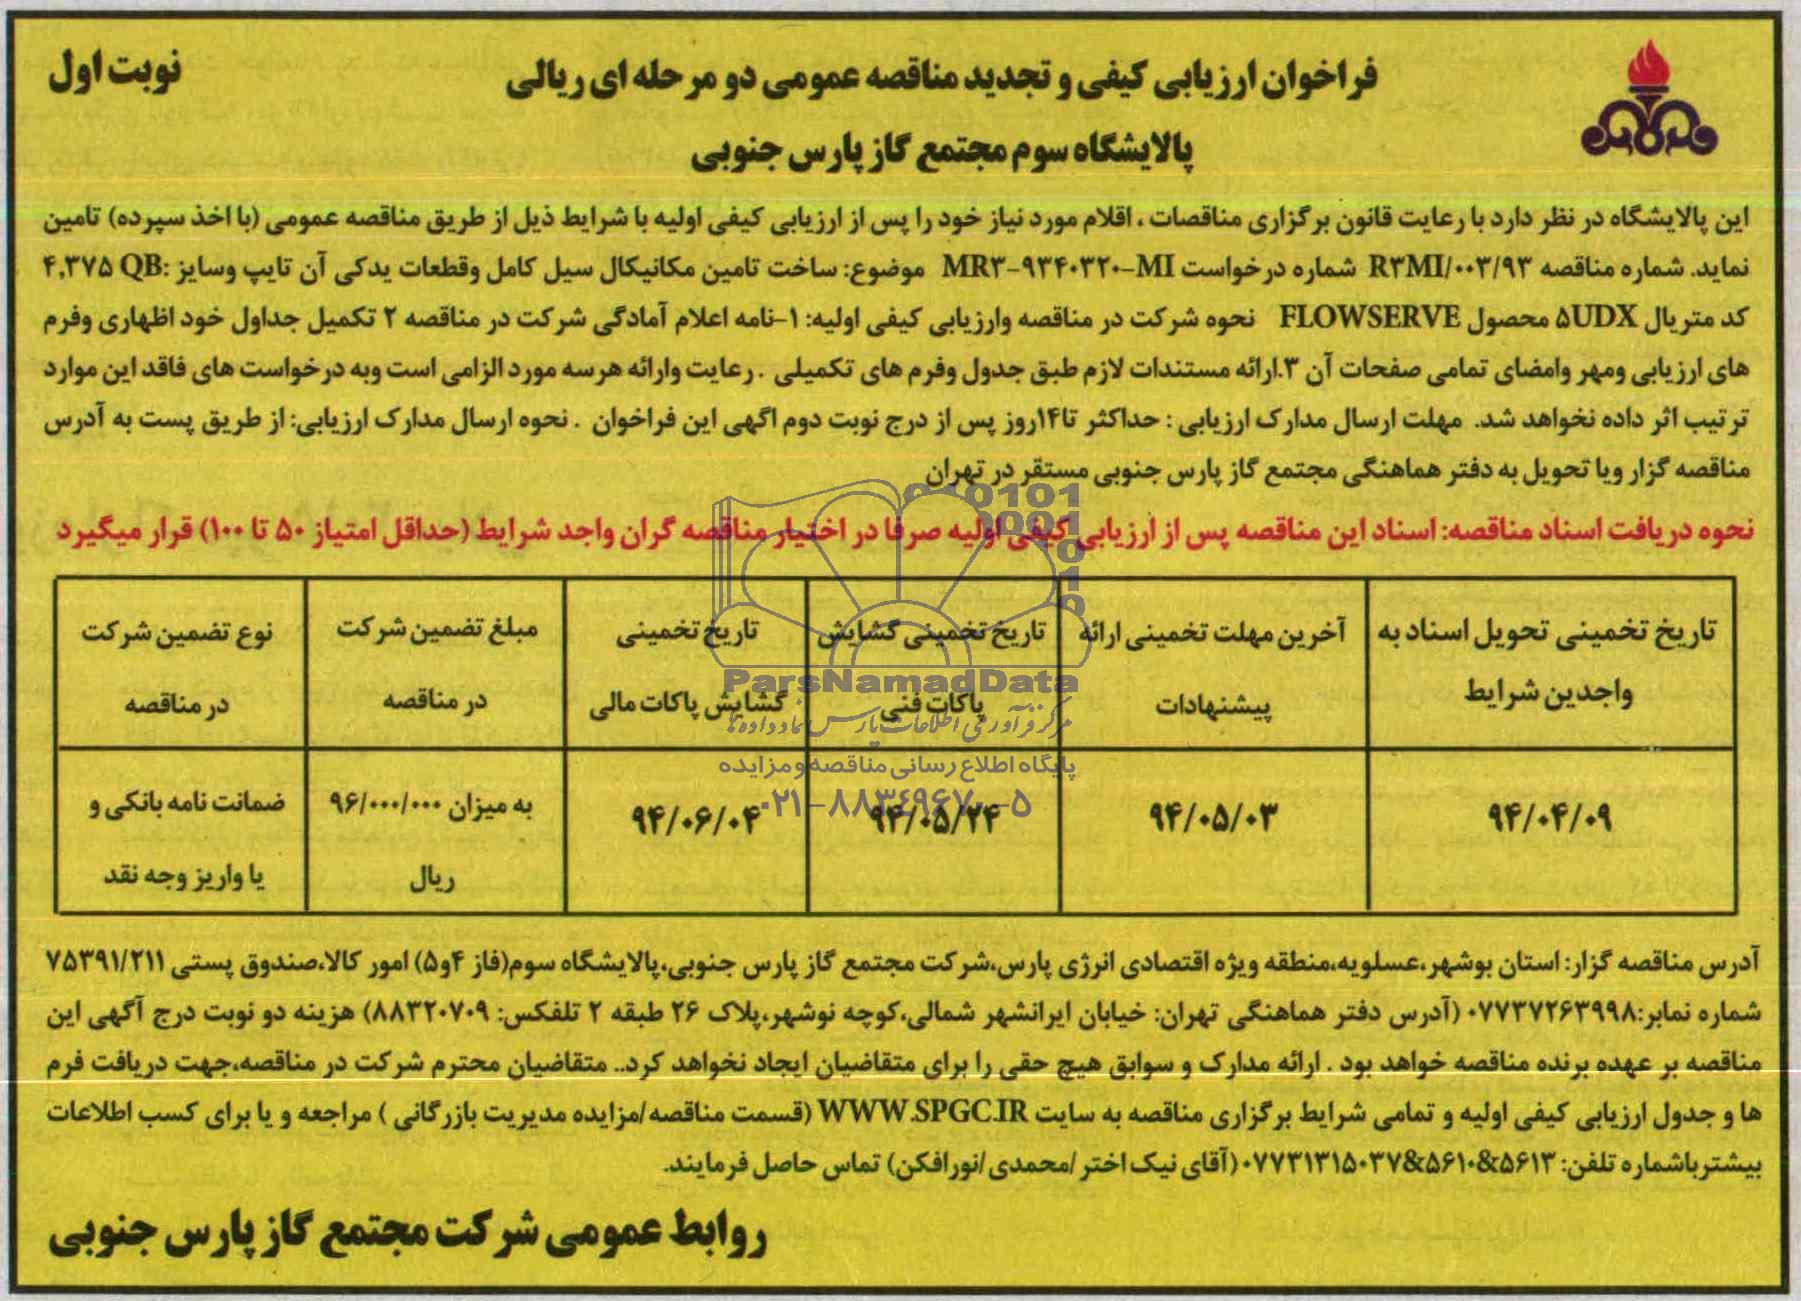 نوبت اول
فراخوان ارزیابی کیفی و تجدید مناقصه عمومی دو مرحله ای ریالی
پالایشگاه سوم مجتمع گاز پارس جنوبی
این پالایشگاه در نظر دارد با رعایت قانون برگزاری مناقصات ، اقلام مورد نیاز خود را پس از ارزیابی کیفی اولیه با شرایط ذیل از طریق مناقصه عمومی (با اخذ سپرده) تامین
نماید. شماره مناقصه R۳MI/۰۰۳/۹۳ شماره درخواست MR۳-۹۳۴۰۳۲۰-MI موضوع: ساخت تامین مکانیکال سیل کامل وقطعات یدکی آن تایپ وسایز :۴,۳۷۵ QB
کد متریال ۵UDX محصول FLOWSERVE نحوه شرکت در مناقصه وارزیابی کیفی اولیه: ۱-نامه اعلام آمادگی شرکت در مناقصه ۲ تکمیل جداول خود اظهاری وفرم
های ارزیابی ومهر وامضای تمامی صفحات آن ۳.ارائه مستندات لازم طبق جدول وفرم های تکمیلی . رعایت وارائه هرسه مورد الزامی است وبه درخواست های فاقد این موارد
ترتیب اثر داده نخواهد شد. مهلت ارسال مدارک ارزیابی : حداکثر تا۱۴روز پس از درج نوبت دوم اگهی این فراخوان . نحوه ارسال مدارک ارزیابی: از طریق پست به آدرس
مناقصه گزار ویا تحویل به دفتر هماهنگی مجتمع گاز پارس جنوبی مستقر در تهران
نحوه دریافت اسناد مناقصه: اسناد این مناقصه پس از ارزیابی کیفی اولیه صرفا در اختیار مناقصه گران واجد شرایط (حداقل امتیاز ۵۰ تا ۱۰۰) قرار میگیرد
تاریخ تخمینی تحویل اسناد به
واجدین شرایط
آخرین مهلت تخمینی ارائه
پیشنهادات
تاریخ تخمینی گشایش
پاکات فنی
تاریخ تخمینی
گشایش پاکات مالی
مبلغ تضمین شرکت
در مناقصه
نوع تضمین شرکت
در مناقصه
۹۴/۰۴/۰۹
۹۴/۰۵/۰۳
۹۴/۰۵/۲۴
۹۴/۰۶/۰۴
به میزان ۹۶/۰۰۰/۰۰۰
ریال
ضمانت نامه بانکی و
یا واریز وجه نقد
ParsNamadData
مرکز فرآوری اطلاعات پارس نماد داده ها
پایگاه اطلاع رسانی مناقصه و مزایده
۰۲۱-۸۸۳۴۹۶۷۰-۵
آدرس مناقصه گزار: استان بوشهر،عسلویه،منطقه ویژه اقتصادی انرژی پارس،شرکت مجتمع گاز پارس جنوبی،پالایشگاه سوم(فاز ۴و۵) امور کالا،صندوق پستی ۷۵۳۹۱/۲۱۱
شماره نمابر:۰۷۷۳۷۲۶۳۹۹۸ (آدرس دفتر هماهنگی تهران: خیابان ایرانشهر شمالی،کوچه نوشهر،پلاک ۲۶ طبقه ۲ تلفکس: ۸۸۳۲۰۷۰۹) هزینه دو نوبت درج آگهی این
مناقصه بر عهده برنده مناقصه خواهد بود . ارائه مدارک و سوابق هیچ حقی را برای متقاضیان ایجاد نخواهد کرد.. متقاضیان محترم شرکت در مناقصه،جهت دریافت فرم
ها و جدول ارزیابی کیفی اولیه و تمامی شرایط برگزاری مناقصه به سایت WWW.SPGC.IR (قسمت مناقصه/مزایده مدیریت بازرگانی ) مراجعه و یا برای کسب اطلاعات
بیشترباشماره تلفن: ۵۶۱۳&۵۶۱۰&۰۷۷۳۱۳۱۵۰۳۷(آقای نیک اختر /محمدی/نورافکن) تماس حاصل فرمایند.
روابط عمومی شرکت مجتمع گاز پارس جنوبی